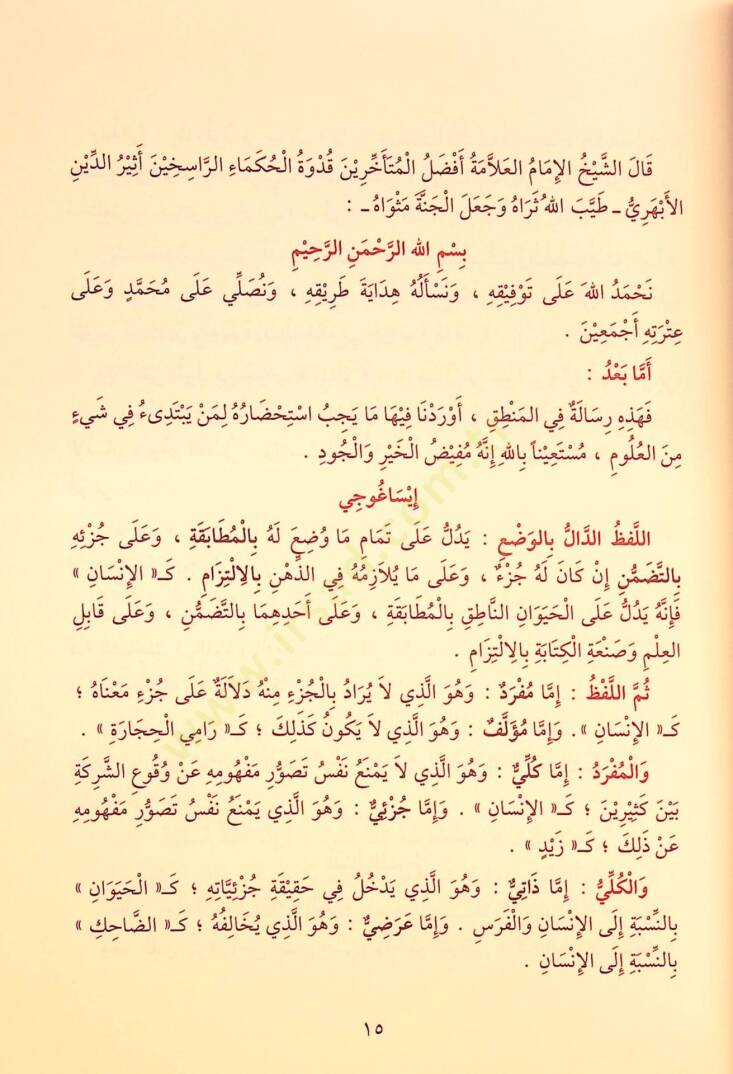 قَالَ الشَّيْخُ الإِمَامُ العَلاَّمَةُ أَفْضَلُ الْمُتَأَخِّرِيْنَ قُدْوَةُ الْحُكَمَاءِ الرَّاسِخِيْنَ أَثِيْرُ الدِّيْنِ
الأَبْهَرِيُّ ـ طَيَّبَ اللهُ ثَرَاهُ وَجَعَلَ الْجَنَّةَ مَثْوَاهُ ـ :
بِسْمِ اللهِ الرَّحْمَنِ الرَّحِيْمِ
نَحْمَدُ اللهَ عَلَى تَوْفِيْقِهِ ، وَنَسْأَلُهُ هِدَايَةَ طَرِيْقِهِ ، وَنُصَلِّي عَلَى مُحَمَّدٍ وَعَلَى
عِتْرَتِهِ أَجْمَعِيْنَ .
أَمَّا بَعْدُ :
فَهَذِهِ رِسَالَةٌ فِي المَنْطِقِ ، أَوْرَدْنَا فِيْهَا مَا يَجِبُ اسْتِحْضَارُهُ لِمَنْ يَبْتَدِىءُ فِي شَيْءٍ
مِنَ العُلُومِ ، مُسْتَعِيْناً بِاللهِ إِنَّهُ مُفِيْضُ الْخَيْرِ وَالْجُودِ .
إِيْسَاغُوجِي
اللَّفْظُ الدَّالُّ بِالوَضْعِ : يَدُلُّ عَلَى تَمَامِ مَا وُضِعَ لَهُ بِالْمُطَابَقَةِ ، وَعَلَى جُزْئِهِ
بِالتَّضَمُّنِ إِنْ كَانَ لَهُ جُزْءٌ ، وَعَلَى مَا يُلاَزِمُهُ فِي الذِّهْنِ بِالِالْتِزَامِ . كَـ« الإِنْسَانِ »
فَإِنَّهُ يَدُلُّ عَلَى الْحَيَوَانِ النَّاطِقِ بِالْمُطَابَقَةِ ، وَعَلَى أَحَدِهِمَا بِالتَّضَمُّنِ ، وَعَلَى قَابِلِ
العِلْمِ وَصَنْعَةِ الْكِتَابَةِ بِالِالْتِزَامِ .
ثُمَّ اللَّفْظُ : إِمَّا مُفْرَدٌ : وَهُوَ الَّذِي لاَ يُرَادُ بِالْجُزْءِ مِنْهُ دَلاَلَةٌ عَلَى جُزْءِ مَعْنَاهُ ؛
كَـ« الإِنْسَانِ ». وَإِمَّا مُؤَلَّفٌ : وَهُوَ الَّذِي لاَ يَكُونُ كَذَلِكَ ؛ كَـ« رَامِي الْحِجَارَةِ » .
وَالْمُفْرَدُ : إِمَّا كُلِّيٌّ : وَهُوَ الَّذِي لاَ يَمْنَعُ نَفْسُ تَصَوُّرِ مَفْهُومِهِ عَنْ وُقُوعِ الشَّرِكَةِ
بَيْنَ كَثِيْرِيْنَ ؛ كَـ« الإِنْسَانِ » . وَإِمَّا جُزْئِيٌّ : وَهُوَ الَّذِي يَمْنَعُ نَفْسُ تَصَوُّرِ مَفْهُومِهِ
عَنْ ذَلِكَ ؛ كَـ« زَيْدٍ » .
وَالْكُلِّيُّ : إِمَّا ذَاتِيٌّ : وَهُوَ الَّذِي يَدْخُلُ فِي حَقِيْقَةِ جُزْئِيَّاتِهِ ؛ كَـ« الْحَيَوَانِ »
بِالنِّسْبَةِ إِلَى الإِنْسَانِ وَالْفَرَسِ . وَإِمَّا عَرَضِيٌّ : وَهُوَ الَّذِي يُخَالِفُهُ ؛ كَـ« الضَّاحِكِ »
بِالنِّسْبَةِ إِلَى الإِنْسَانِ .
١٥